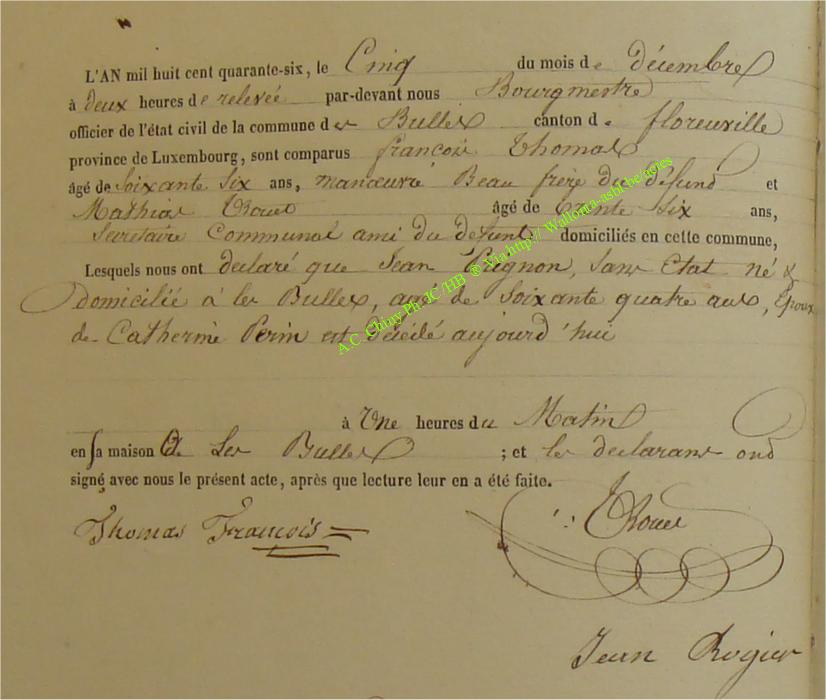 L'AN mil huit cent quarante-six, le Cinq du mois de décembre
à deux heures de relevée par-devant nous Bourgmestre
officier de l'état civil de la commune des Bulles canton de florenville
province de Luxembourg, sont comparus françois Thomas
âgé de Soixante Six ans, manœuvre Beau frère du défund et
Mathias âgé de trente Six ans,
Secretaire Communal ami du défunt domiciliés en cette commune,
Lesquels nous ont déclaré que Jean Pignon, sans Etat né &
domicilié à les Bulles, agé de Soixante quatre ans, Epoux
de Catherine Perin est décédé aujourd'hui
à Une heures du Matin
en sa maison à Les Bulles ; et les declarans ond
signé avec nous le présent acte, après que lecture leur en a été faite.
Thomas François
Jean Rogier
A.C. Chiny Ph.JC /HB ® Via http:// Wallonia-asbl.be/actes